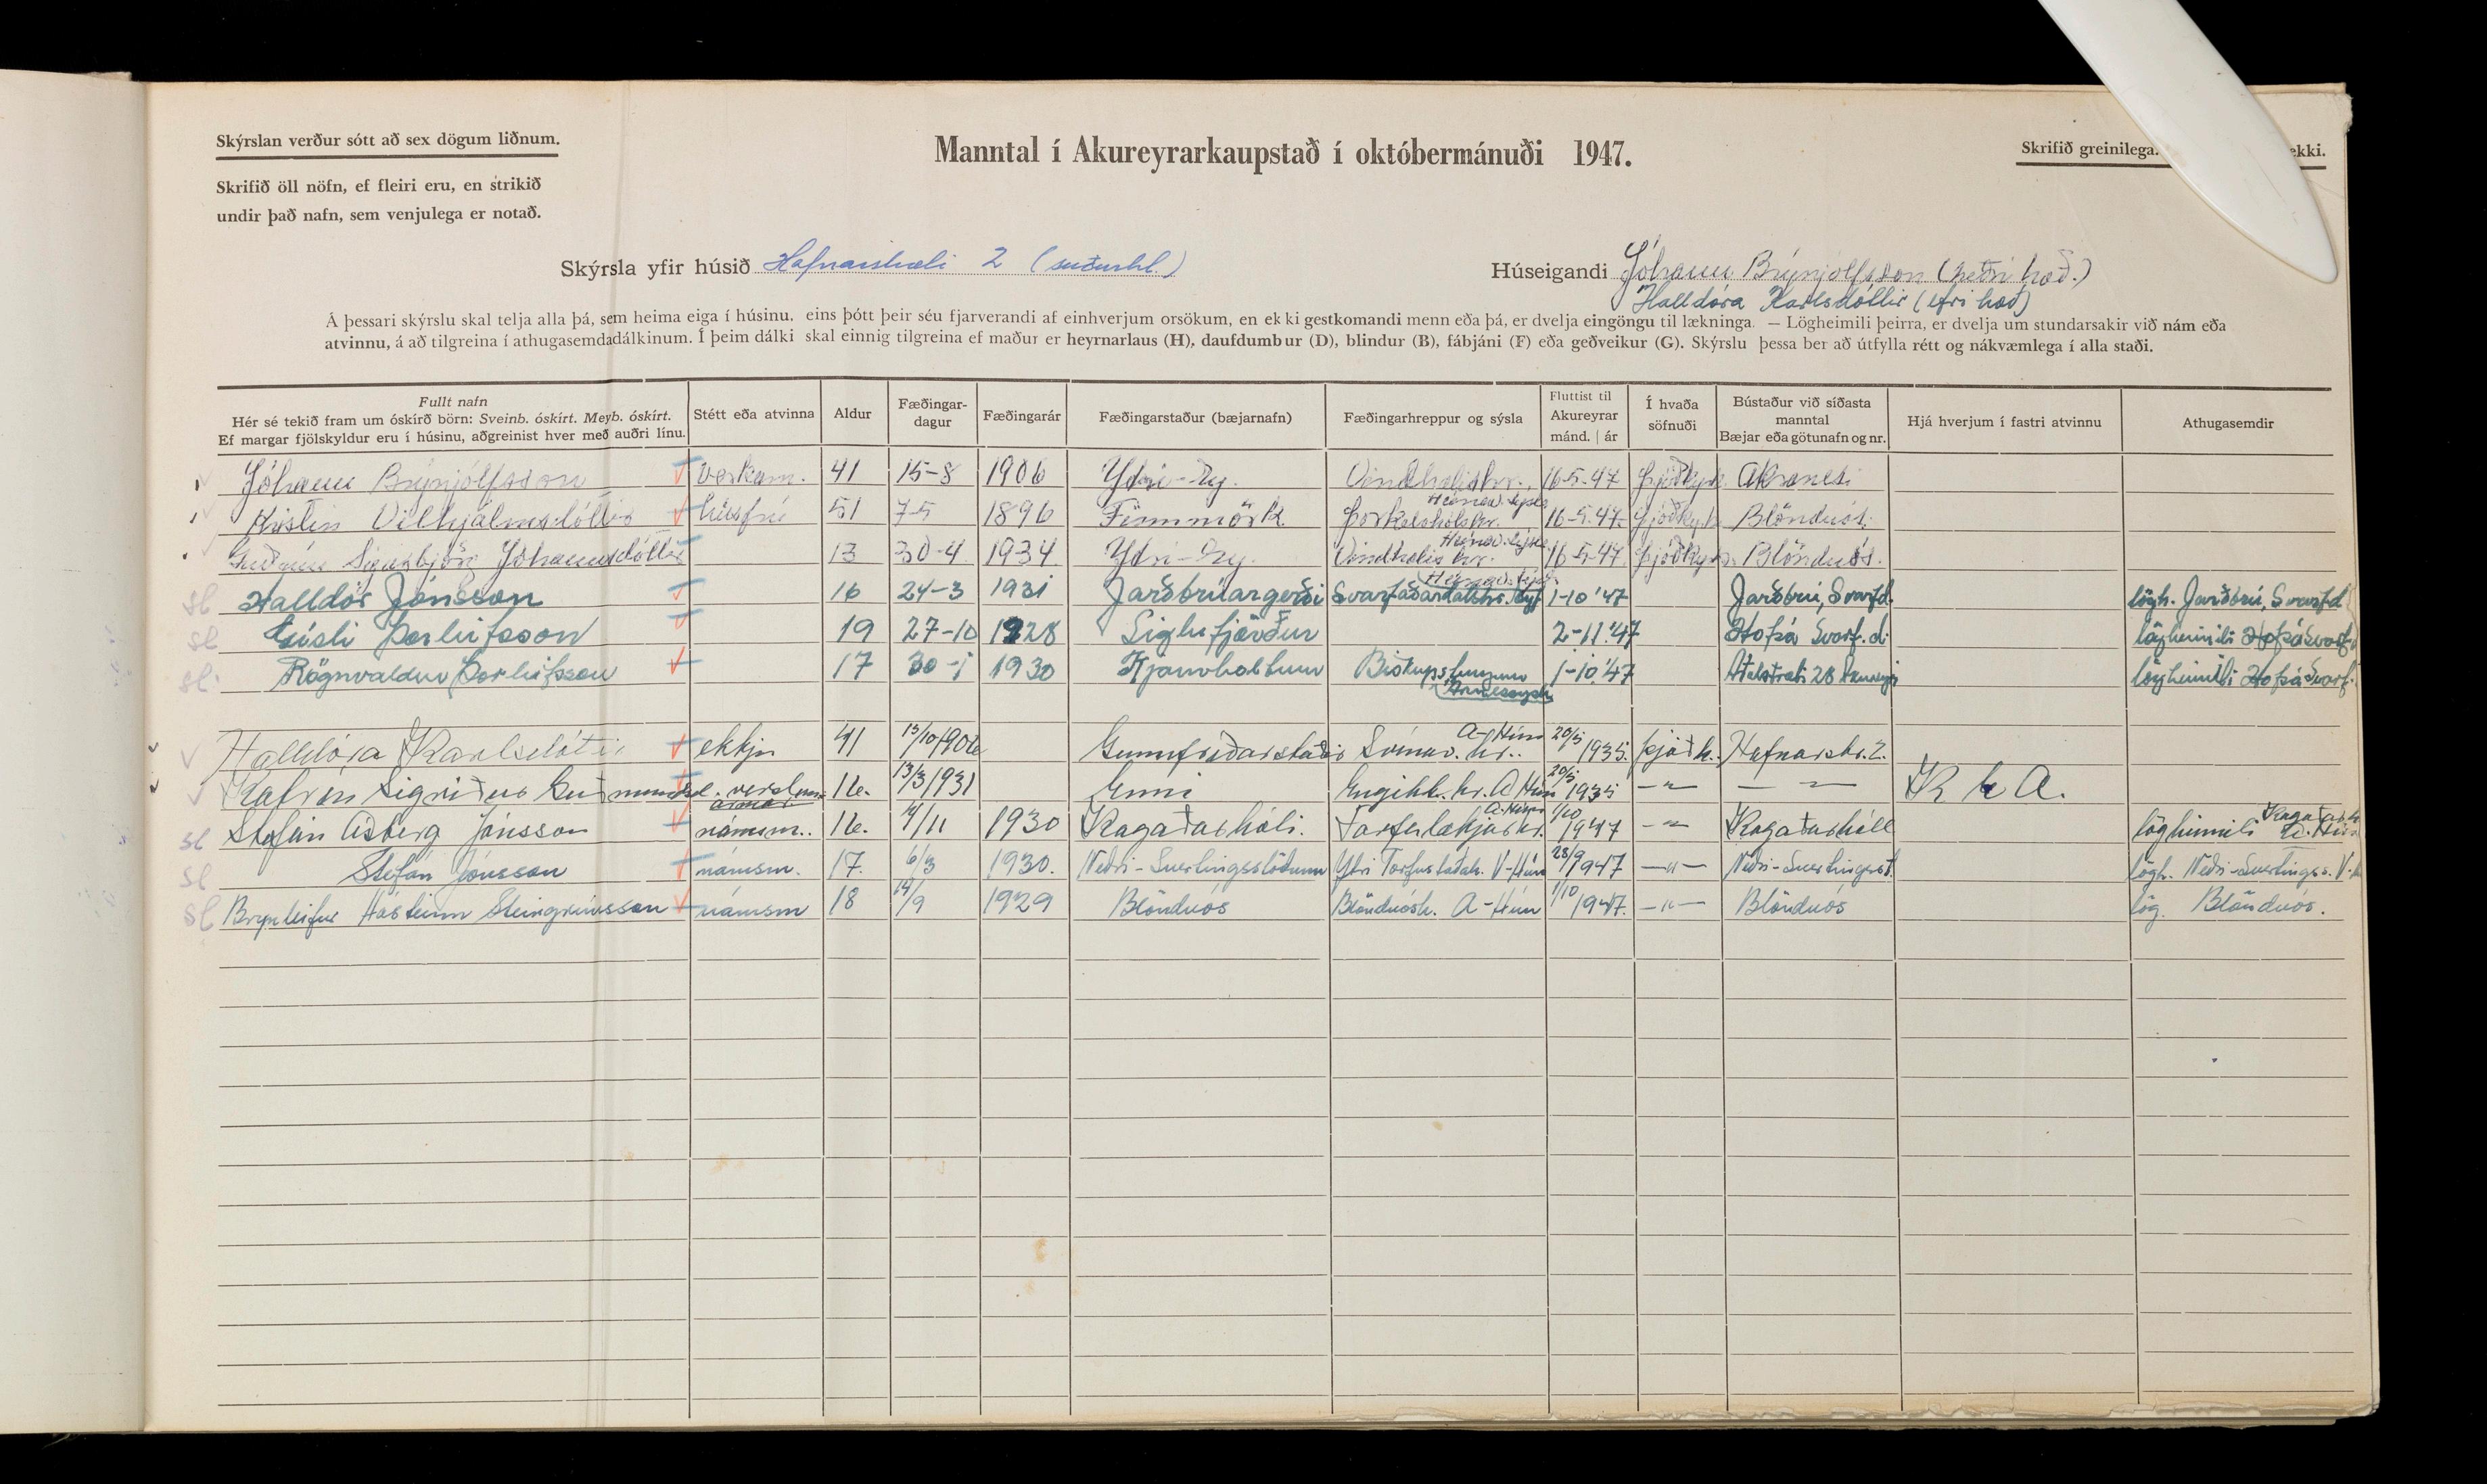 Skýrslan verður sótt að sex dögum liðnum.
Skrifið öll nöfn, ef fleiri eru, en strikið
undir það nafn, sem venjulega er notað.
Manntal í Akureyrarkaupstað í októbermánuði 1947.
Skrifið greinilega. ekki.
Skýrsla yfir húsið Hafnarstræti 2 (suðurhl.)
Húseigandi Jóhann Brynjólfsson (neðri hæð.)
Halldóra Karlsdóttir (efri hæð)
Á þessari skýrslu skal telja alla þá, sem heima eiga í húsinu, eins þótt þeir séu fjarverandi af einhverjum orsökum, en ekki gestkomandi menn eða þá, er dvelja eingöngu til lækninga. — Lögheimili þeirra, er dvelja um stundarsakir við nám eða
atvinnu, á að tilgreina í athugasemdadálkinum. Í þeim dálki skal einnig tilgreina ef maður er heyrnarlaus (H), daufdumbur (D), blindur (B), fábjáni (F) eða geðveikur (G). Skýrslu þessa ber að útfylla rétt og nákvæmlega í alla staði.
Fullt nafn
Hér sé tekið fram um óskírð börn: Sveinb. óskírt. Meyb. óskírt.
Ef margar fjölskyldur eru í húsinu, aðgreinist hver með auðri línu.
Stétt eða atvinna
Aldur
Fæðingar-
dagur
Fæðingarár
Fæðingarstaður (bæjarnafn)
Fæðingarhreppur og sýsla
Fluttist til
Akureyrar
mánd. | ár
Í hvaða
söfnuði
Bústaður við síðasta
manntal
Bæjar eða götunafn og nr.
Hjá hverjum í fastri atvinnu
Athugasemdir
Jóhann Brynjólfsson verkam. 41 15-8 1906 Ytri-Ey. Vindhælishr. 16-5-47 þjóðkyrk. Akranesi
Húnav. sýsla
Kristín Vilhjálmsdóttir húsfrú 51 7-5 1896 Finnmörk Þorkelshólshr. 16-5-47 þjóðkyrk. Blönduós.
Húnav. sýsla
Guðrún Sigurbjörg Jóhannsdóttir 13 30-4 1934 Ytri-Ey. Vindhælis hr. 16-5-47 þjóðkyrk. Blönduós.
Húnav. sýsla
sl Halldór Jónsson 16 24-3 1931 Jarðbrúargerði Svarfaðardalshr. Eyf 1-10 '47 Jarðbrú, Svarfd. lögh. Jarðbrú, Svarfd
sl Gísli Þorleifsson 19 27-10 1928 Siglufjörður 2-11.'47 Hofsá Svarf.d. lögheimili Hofsá Svarf.
sl. Rögnvaldur Þorleifsson 17 30-1 1930 Kjarnholtum Biskupstungum 1-10.'47 Aðalstræti 28 lögheimili Hofsá Svarf.
Árnessýsla
Halldóra Karlsdóttir ekkja 41 13/10 1906 Gunnfríðarstaðir Svínav. hr. A-Hún 20/5 1935. þjóðk. Hafnarstr. 2.
Katrín Sigríður Guðmundsd. verslunar 16. 13/3 1931 Enni Engihl. hr. A Hún 20/5 1935 —"— —"— K E A.
sl Stefán Ásberg Jónsson námsm. 16. 4/11 1930 Kagaðarhóli. Torfulækjarhr. A-Hún 1/10 1947 —"— Kagaðarhóll lögheimili Kagaðarh. A. Hún
sl Stefán Jónsson námsm. 17. 6/3 1930. Neðri-Svertingsstöðum Ytri Torfustaðah. V-Hún 28/9 1947 —"— Neðri-Svertingsst. lögh. Neðri-Svertingss. V-
sl Brynleifur Hásteinn Steingrímsson námsm 18 14/9 1929 Blönduós Blönduósh. A-Hún 1/10 1947. —"— Blönduós lög. Blönduós.